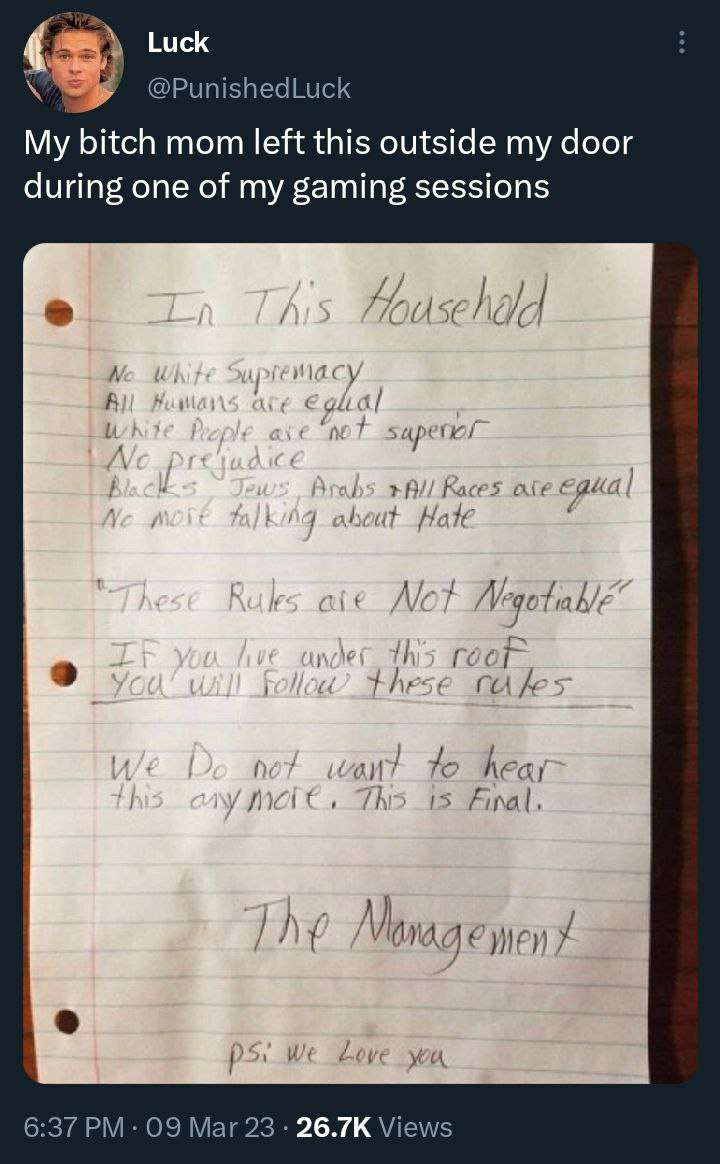 Luck
@PunishedLuck
My bitch mom left this outside my door
during one of my gaming sessions
In This Household
No White Supremacy
All Humans are equal
White People are not superior
No prejudice
Blacks, Jews, Arabs + All Races are equal
No more talking about Hate
"These Rules are Not Negotiable"
If you live under this roof
you will follow these rules
We Do not want to hear
this anymore. This is Final.
The Management
ps: we Love you
6:37 PM · 09 Mar 23 · 26.7K Views